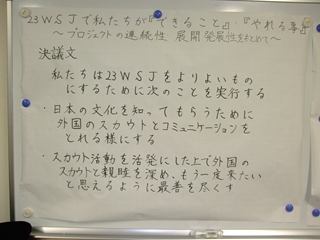 23WSJで私たちが『できること』・『やれる事』
～プロジェクトの連続性 展開発展性をもとめて～
決議文
私たちは23WSJをよりよいもの
にするために次のことを実行する
・日本の文化を知ってもらうために
外国のスカウトとコミュニケーションを
とれる様にする
・スカウト活動を活発にした上で外国の
スカウトと親睦を深め、もう一度来たい
と思えるように最善を尽くす